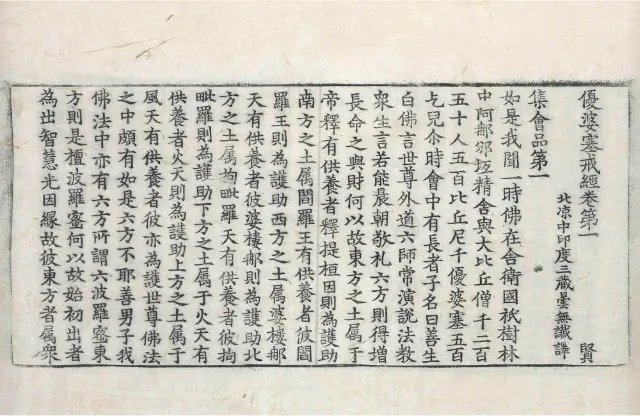 優婆塞戒經卷第一
賢
北涼中印度三藏曇無讖譯
集會品第一
如是我聞一時佛在舍衛國祇樹林
中阿那邠坻精舍與大比丘僧千二百
五十人五百比丘尼千優婆塞五百
乞兒尒時會中有長者子名曰善生
白佛言世尊外道六師常演說法教
衆生言若能晨朝敬礼六方則得增
長命之與財何以故東方之土属于
帝釋有供養者釋提桓因則為護助
南方之土属閻羅王有供養者彼閻
羅王則為護助西方之土属婆樓那
天有供養者彼婆樓那則為護助北
方之土属拘毗羅天有供養者彼拘
毗羅則為護助下方之土属于火天有
供養者火天則為護助上方之土属于
風天有供養者彼亦為護世尊佛法
之中頗有如是六方不耶善男子我
佛法中亦有六方所謂六波羅蜜東
方則是檀波羅蜜何以故始初出者
為出智慧光因緣故彼東方者属衆